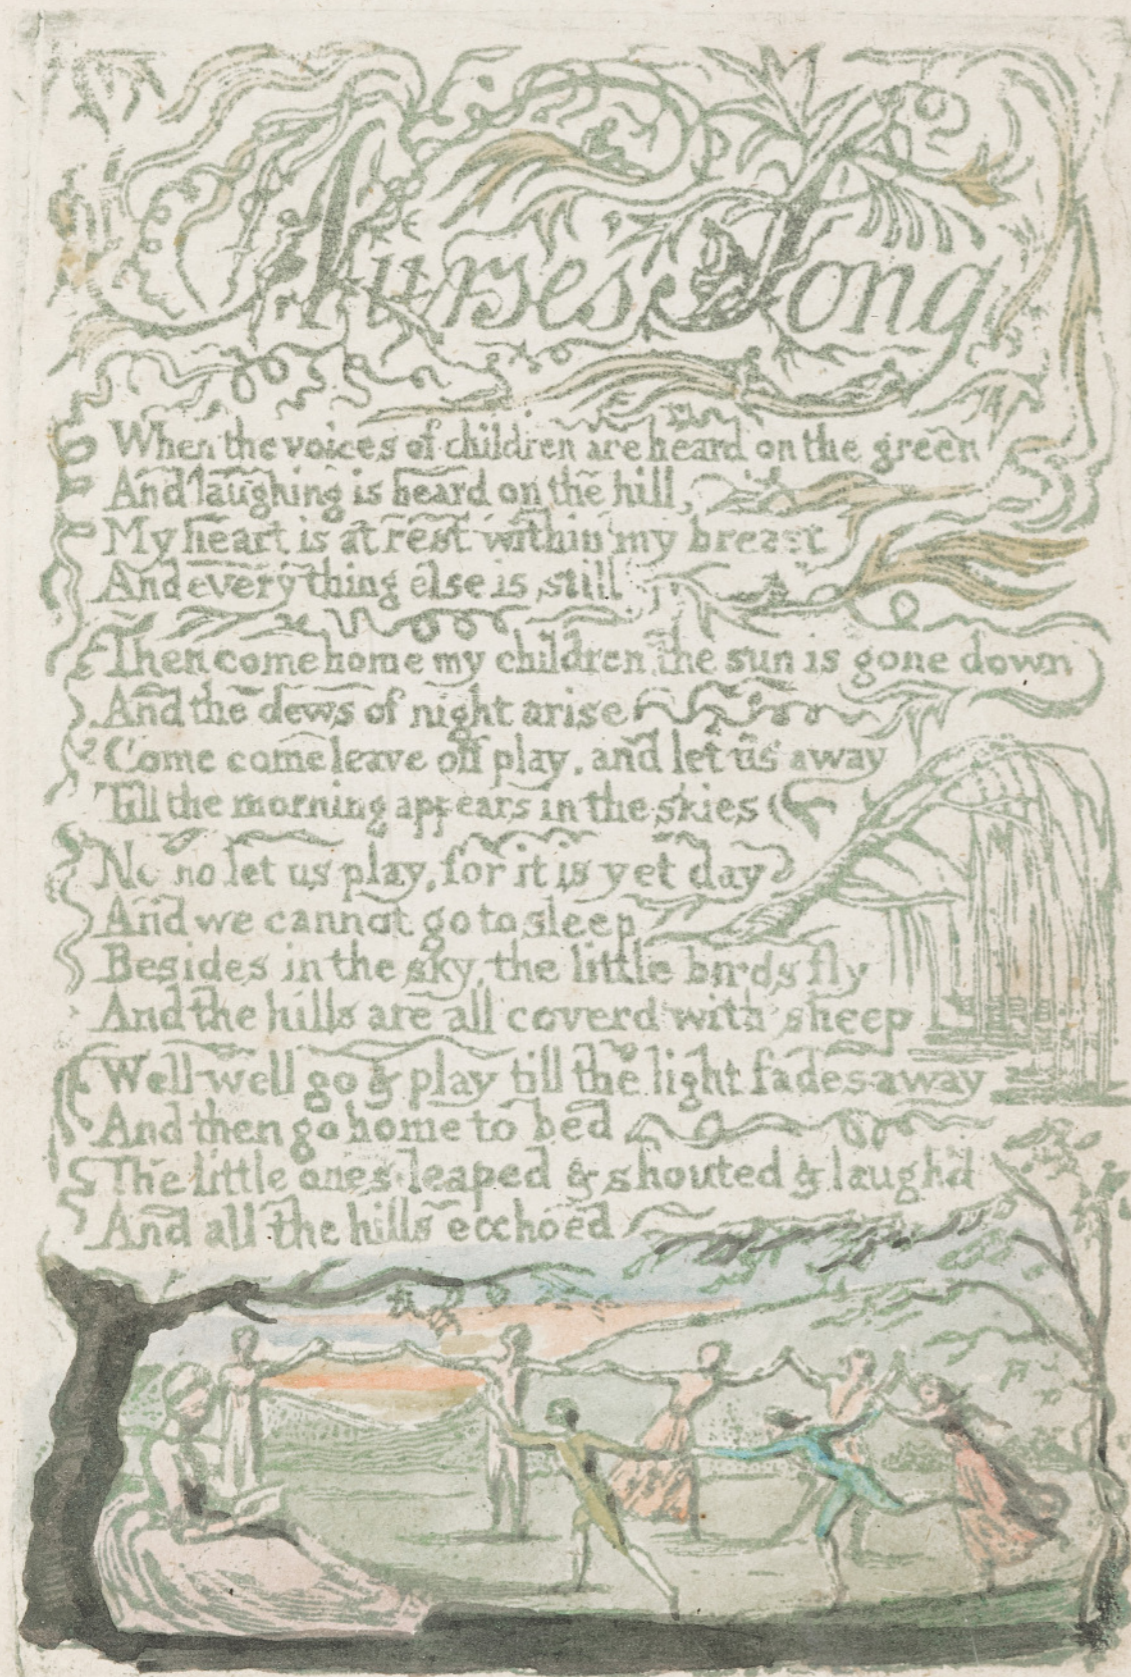 Nurse's Song
When the voices of children are heard on the green
And laughing is heard on the hill,
My heart is at rest within my breast
And every thing else is still
Then come home my children, the sun is gone down
And the dews of night arise
Come come leave off play, and let us away
Till the morning appears in the skies
No no let us play, for it is yet day
And we cannot go to sleep
Besides in the sky, the little birds fly
And the hills are all coverd with sheep
Well well go & play till the light fades away
And then go home to bed
The little ones leaped & shouted & laugh'd
And all the hills ecchoed